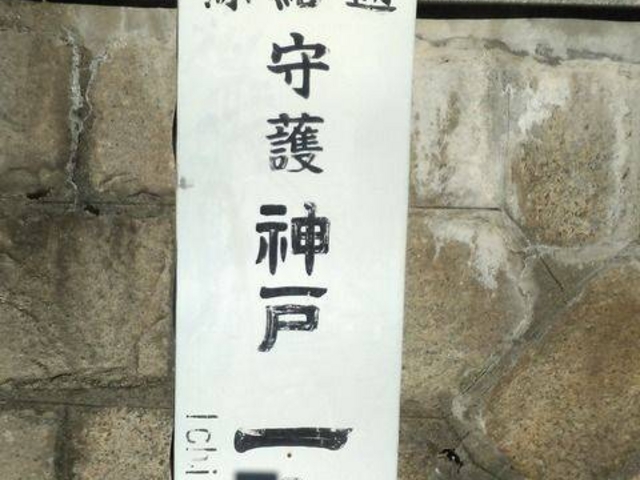 守護
神戸
一
Ichi